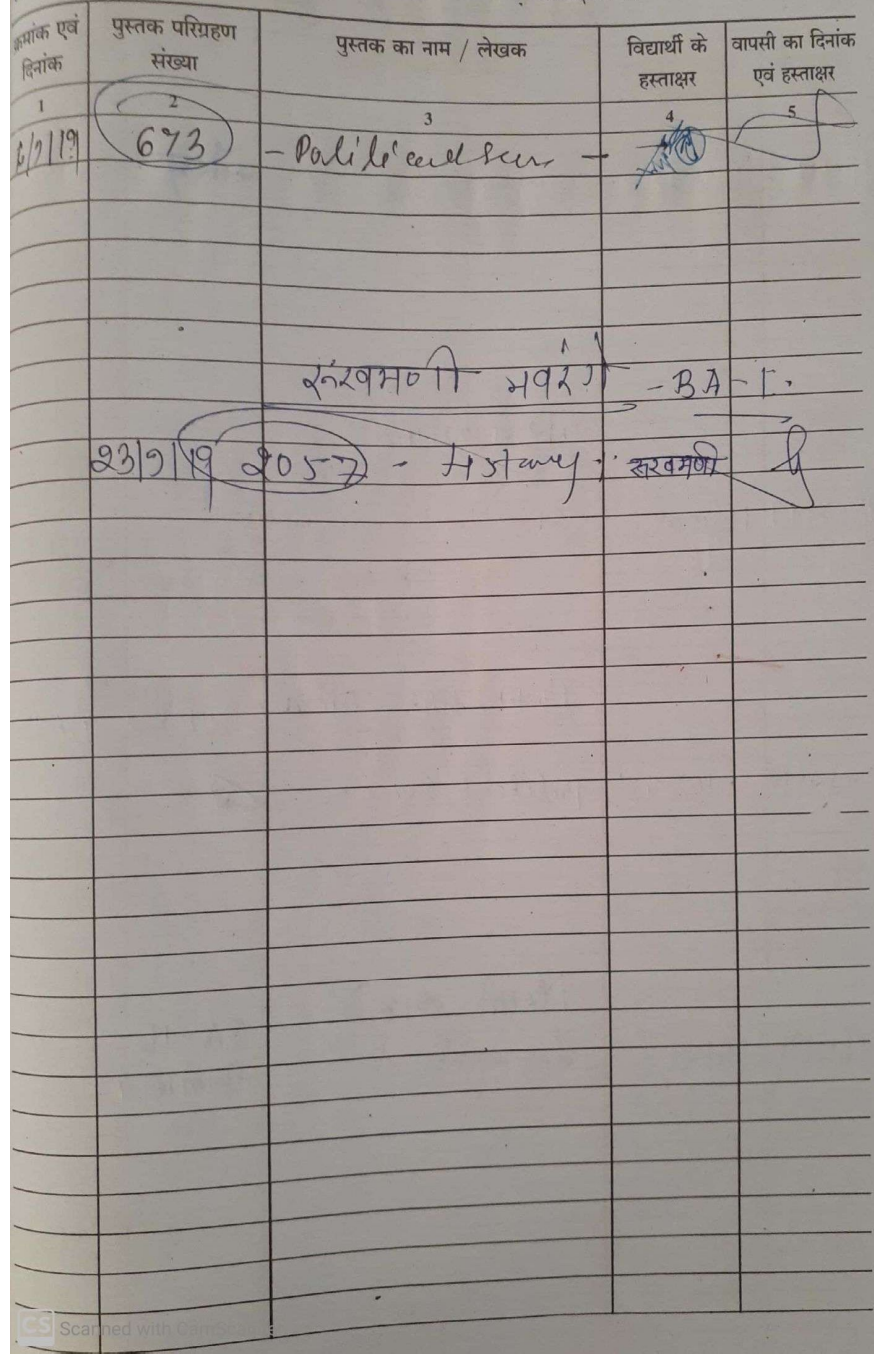 क्रमांक एवं दिनांक पुस्तक परिग्रहण संख्या पुस्तक का नाम / लेखक विद्यार्थी के हस्ताक्षर वापसी का दिनांक एवं हस्ताक्षर
1 2 3 4 5
673 - Political
रूखमणी - BA - I.
23/9/19 2057 - रूखमणी
CS Scanned with CamScanner